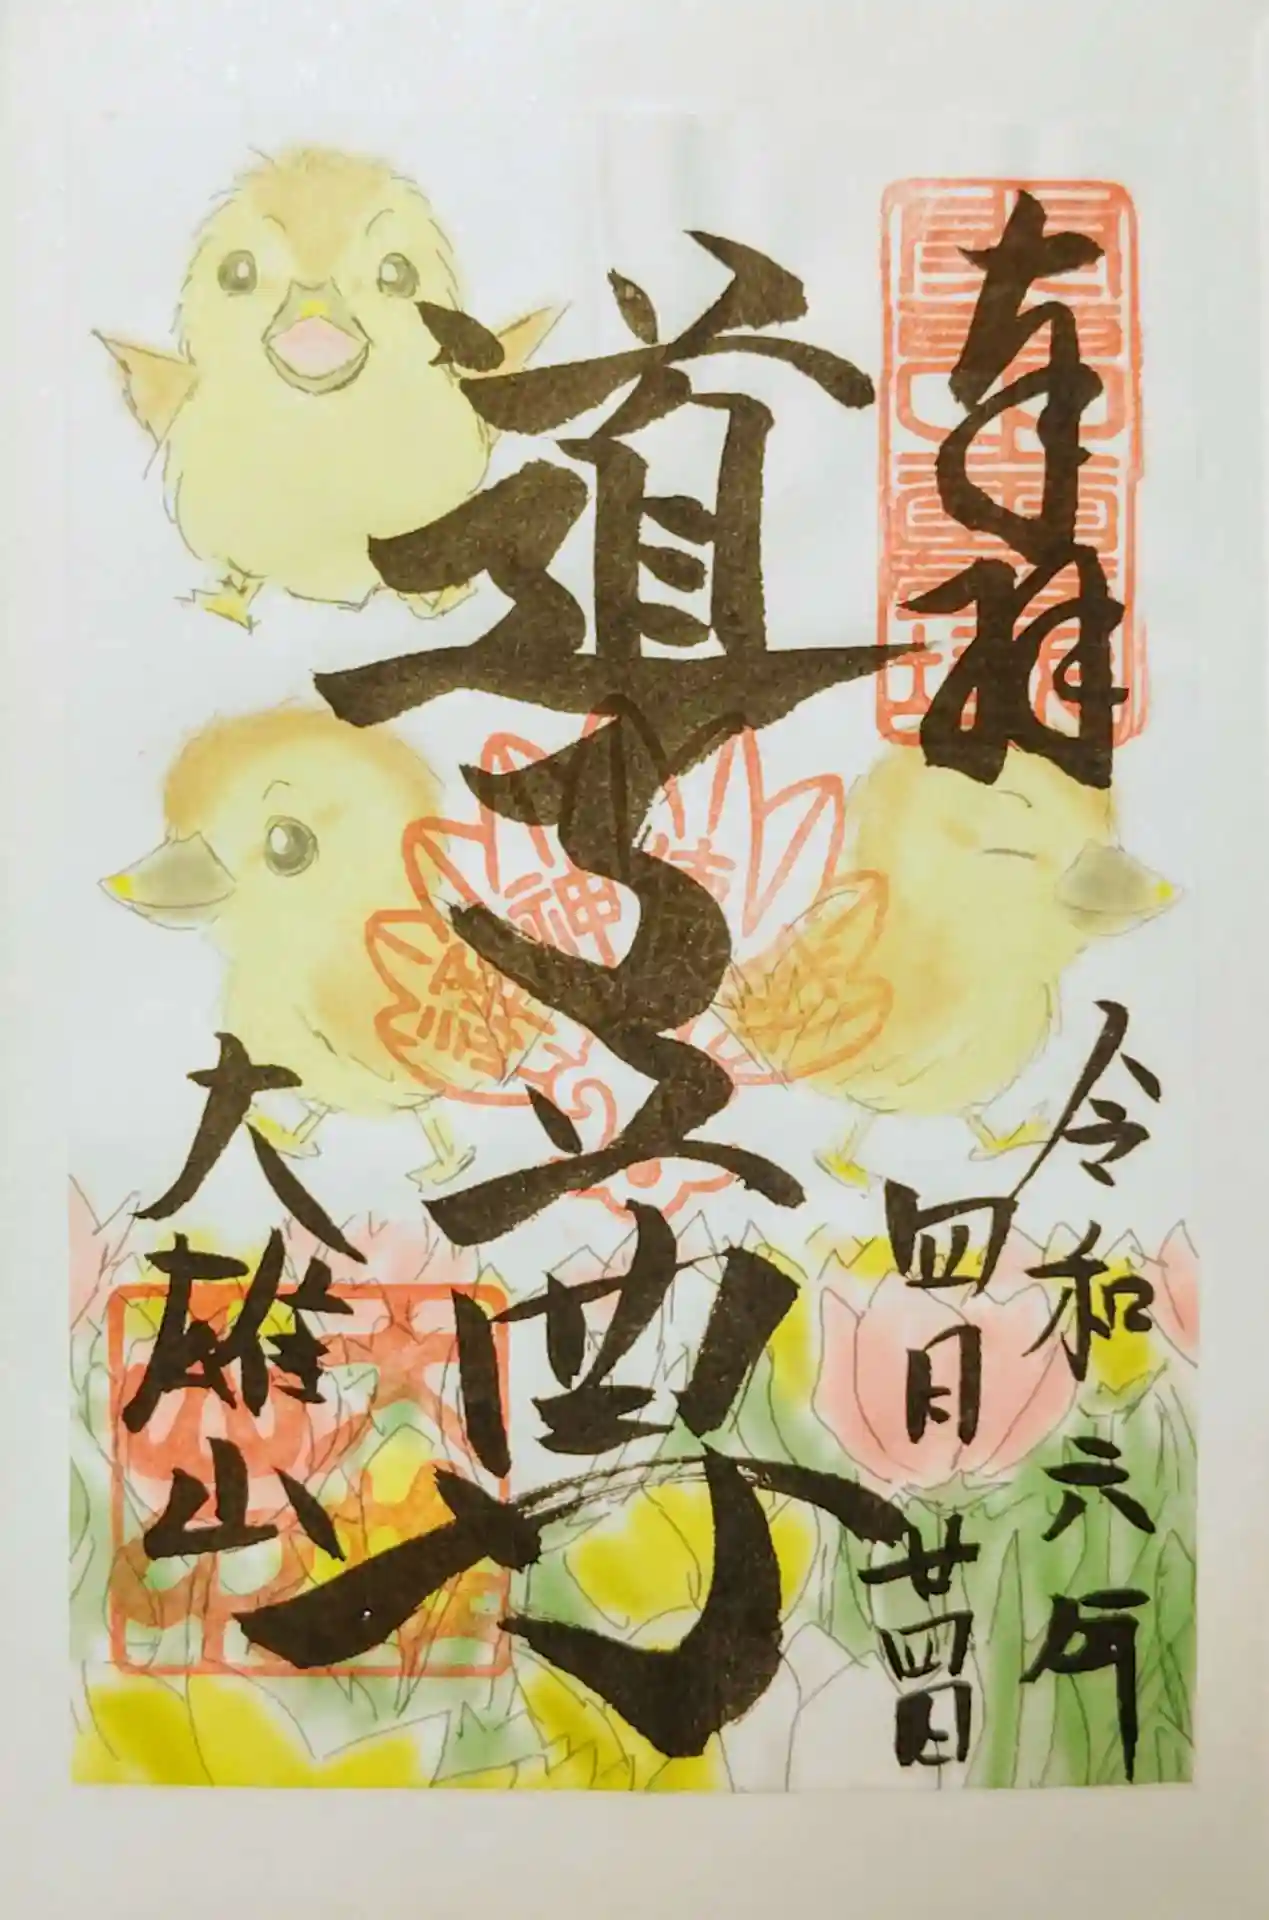 奉拝
令和六年
四月廿四日
道了尊
大雄山